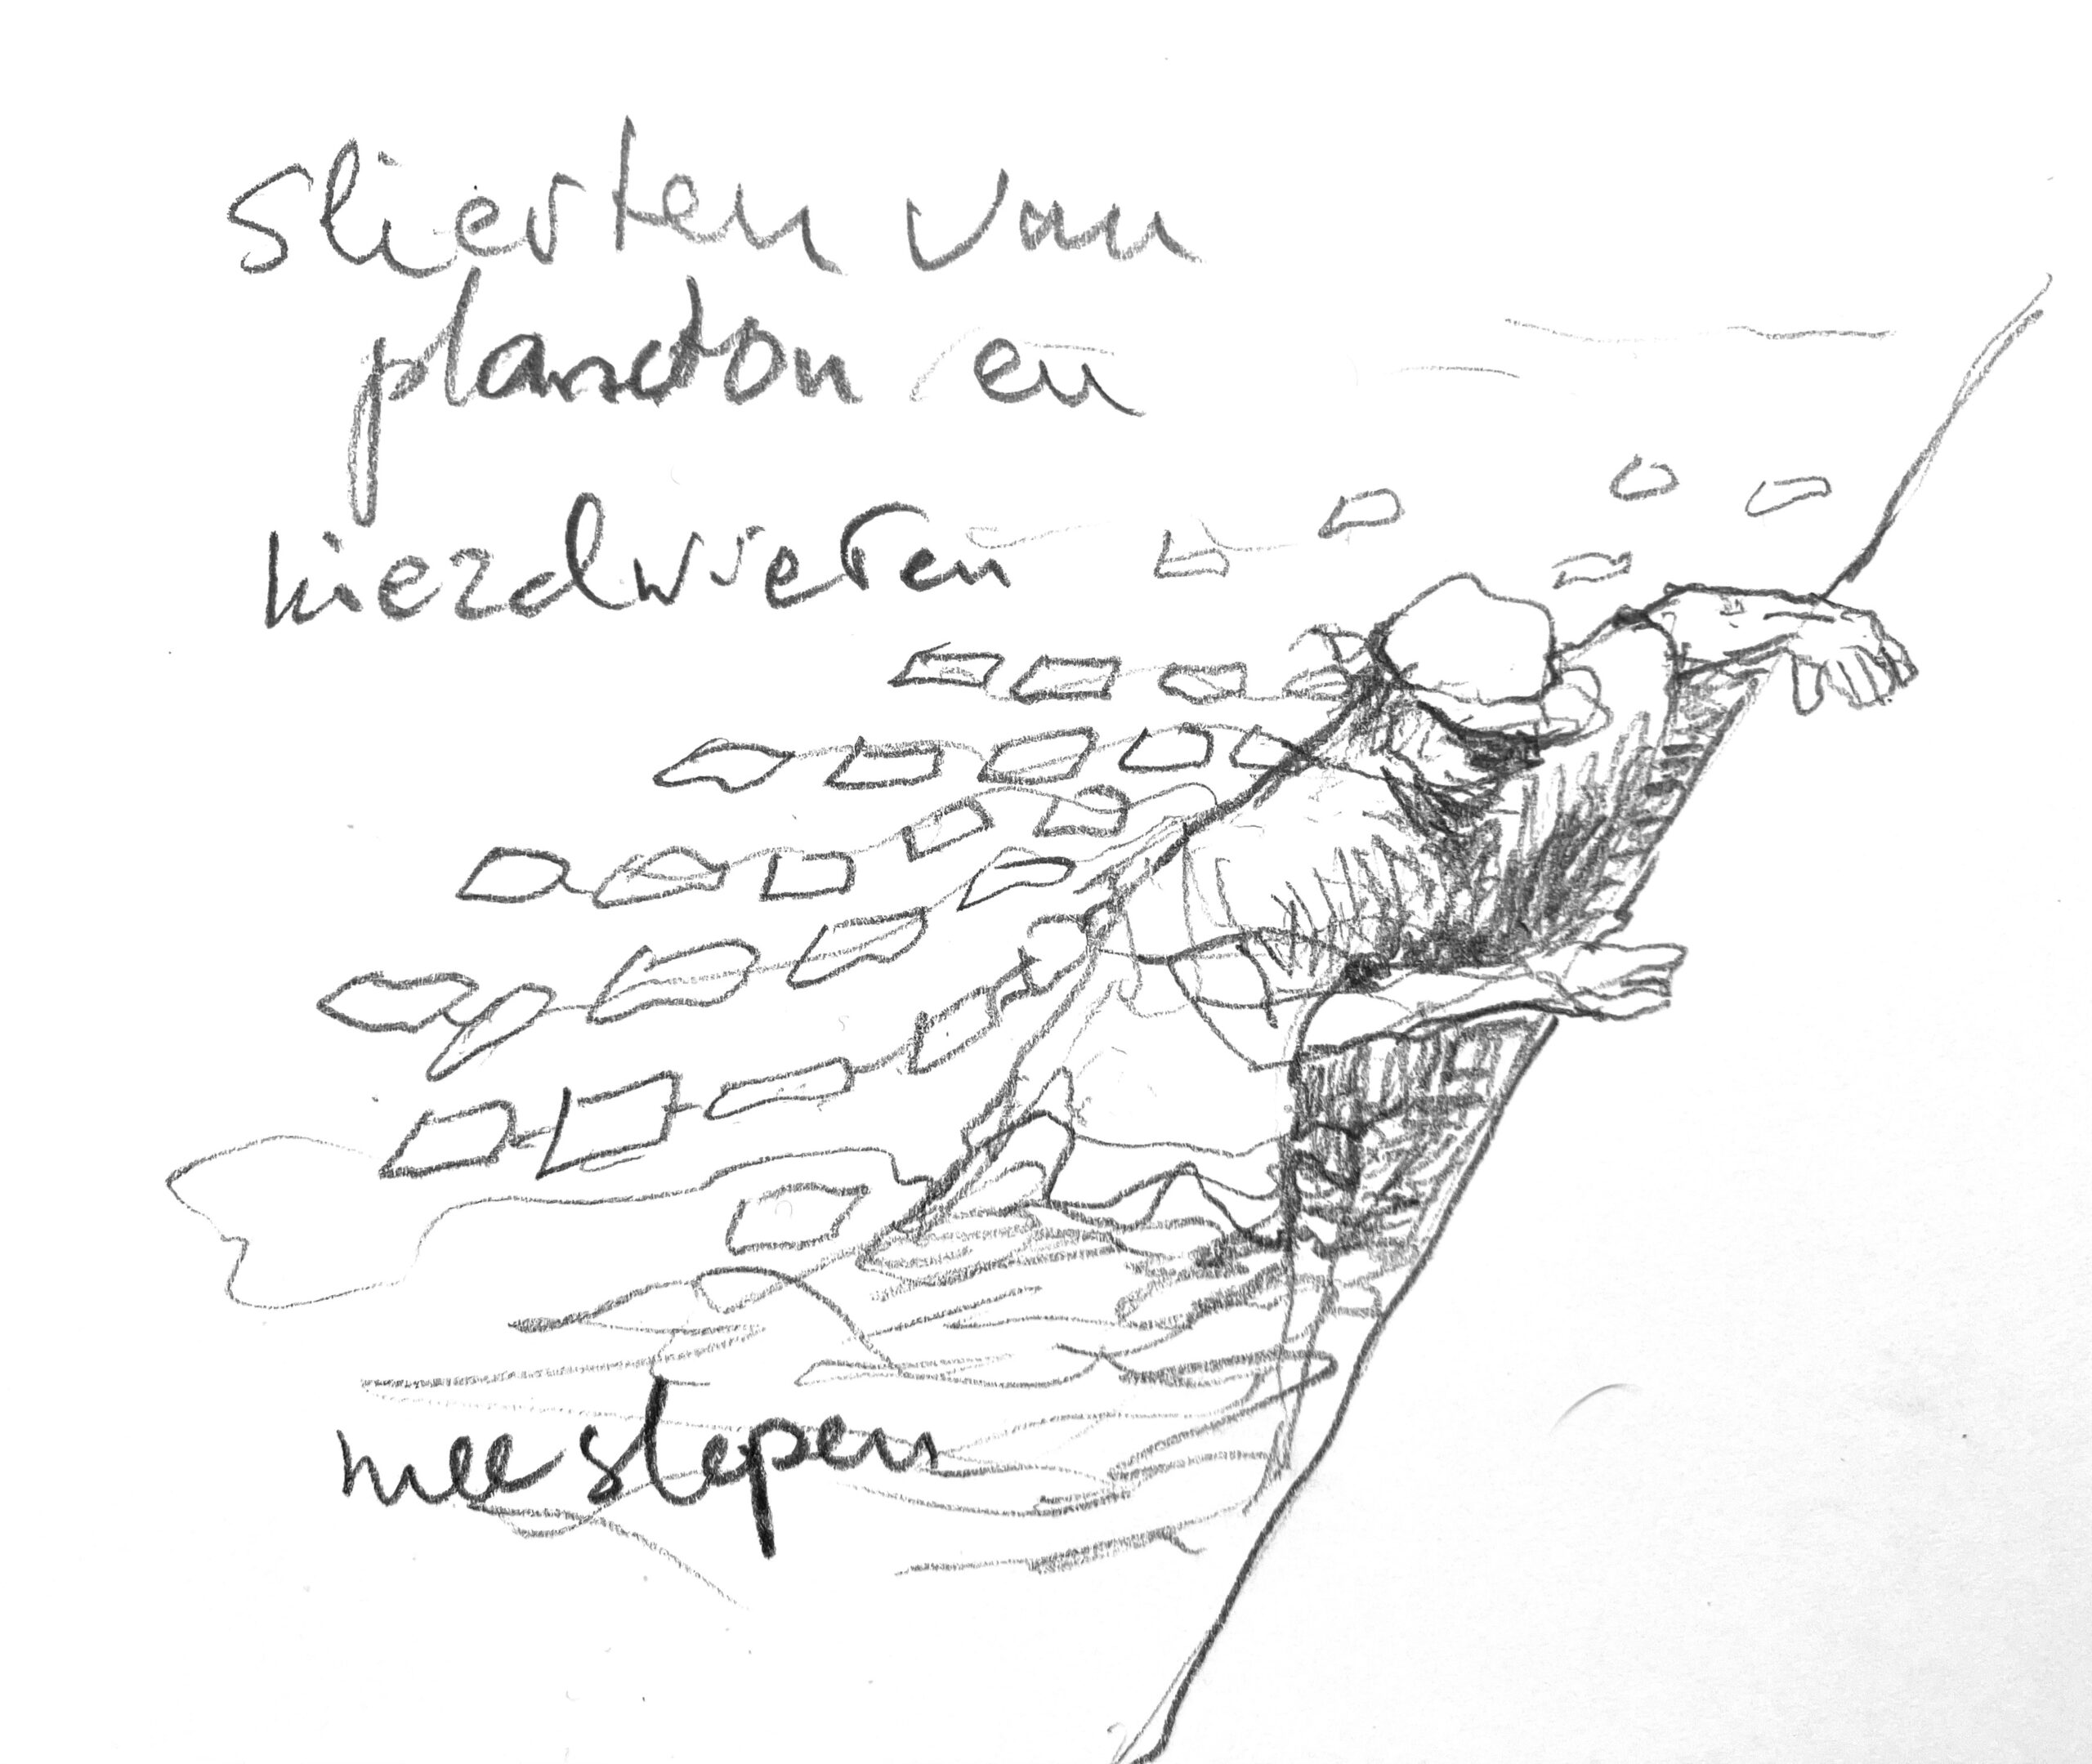 Slierten van
plancton en
kiezelwieren
mee slepen